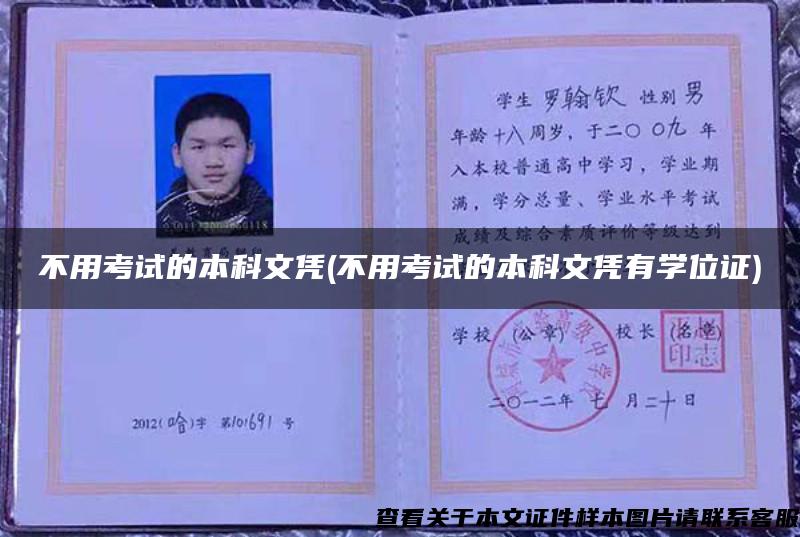 学生 罗翰钦 性别 男
年龄 十八 周岁，于二〇〇九 年
入本校普通高中学习，学业期
满，学分总量、学业水平考试
成绩及综合素质评价等级达到
不用考试的本科文凭(不用考试的本科文凭有学位证)
学校 (公章) 校长 (名章)
二〇一二年 七 月二十日
2012(哈)字 第101691 号
查看关于本文证件样本图片请联系客服